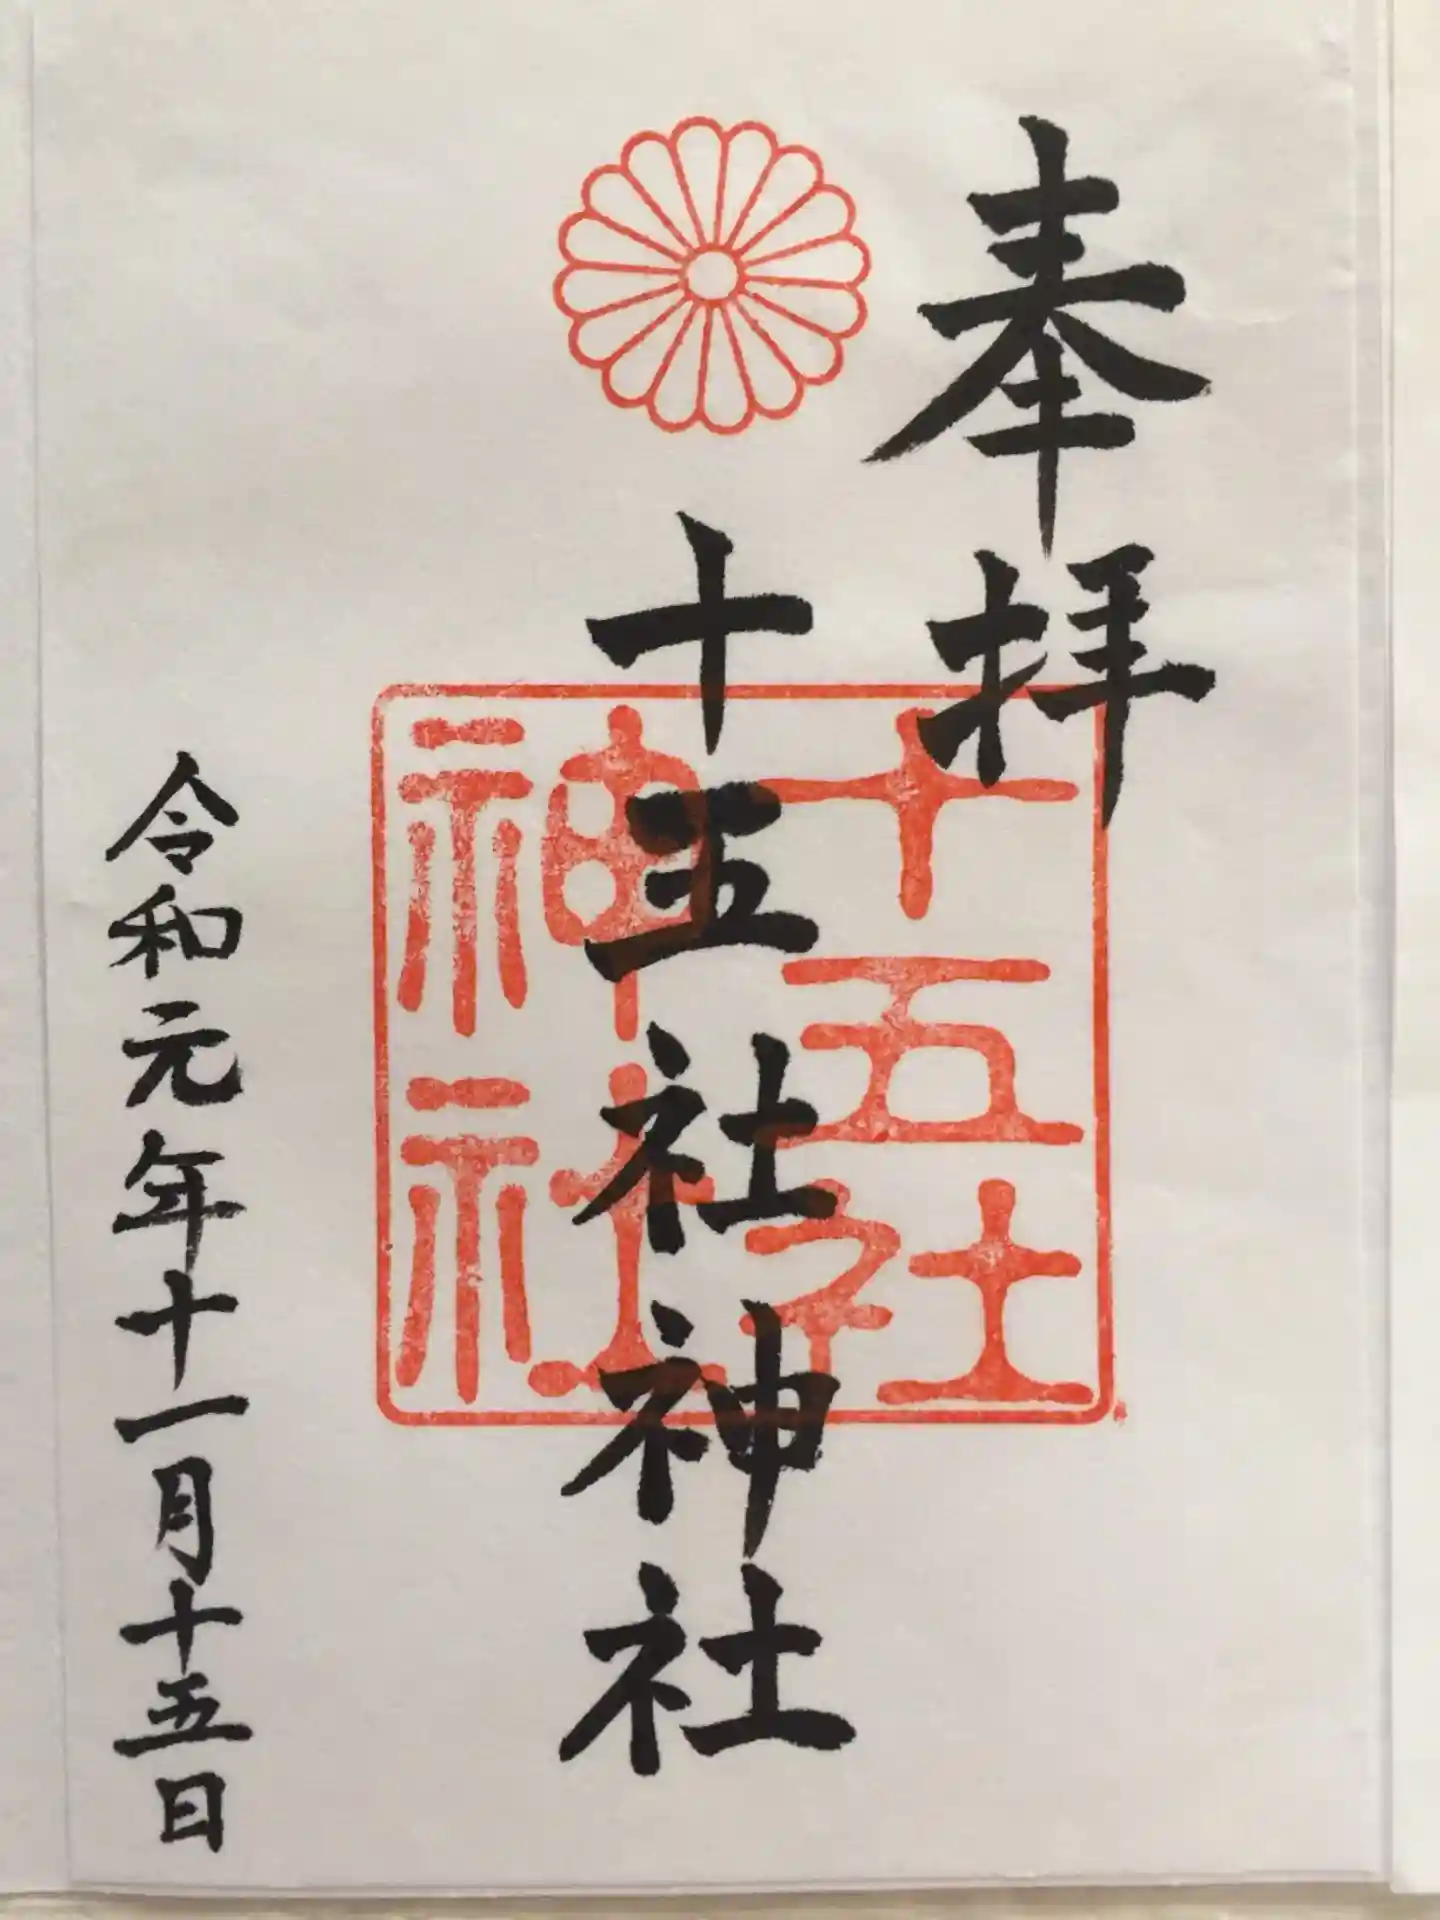 奉拝
十五社神社
十五社神社
令和元年十一月十五日